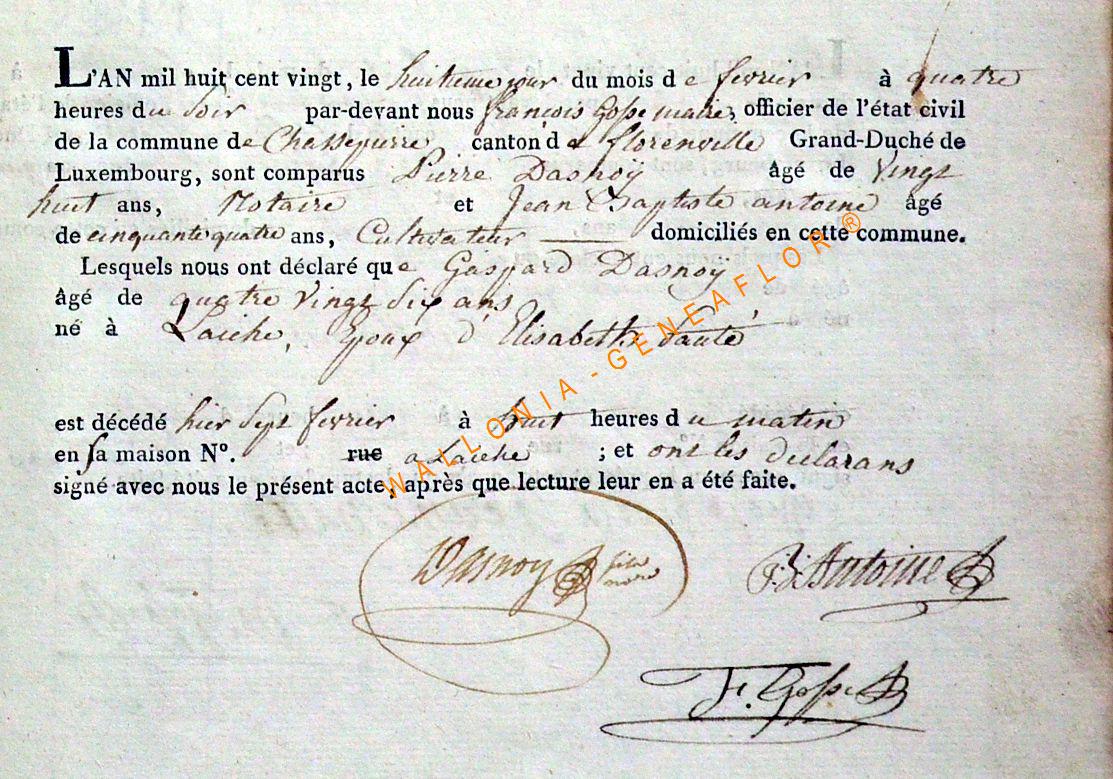 L'AN mil huit cent vingt, le huitieme jour du mois de fevrier à quatre
heures du soir par-devant nous françois Gosse maire, officier de l'état civil
de la commune de Chassepierre canton de florenville Grand-Duché de
Luxembourg, sont comparus Pierre Dasnoy âgé de Vingt
huit ans, Notaire et Jean Baptiste antoine âgé
de cinquante quatre ans, Cultivateur domiciliés en cette commune.
Lesquels nous ont déclaré que Gaspard Dasnoy
âgé de quatre Vingt Six ans
né à Laiche, Epoux d'Elisabeth
est décédé hier Sept fevrier à huit heures du matin
en sa maison N°. rue a Laiche ; et ont les declarans
signé avec nous le présent acte, après que lecture leur en a été faite.
Dasnoy
J: B: Antoine
F. Gosse
WALLONIA - GENEAFLOR ®